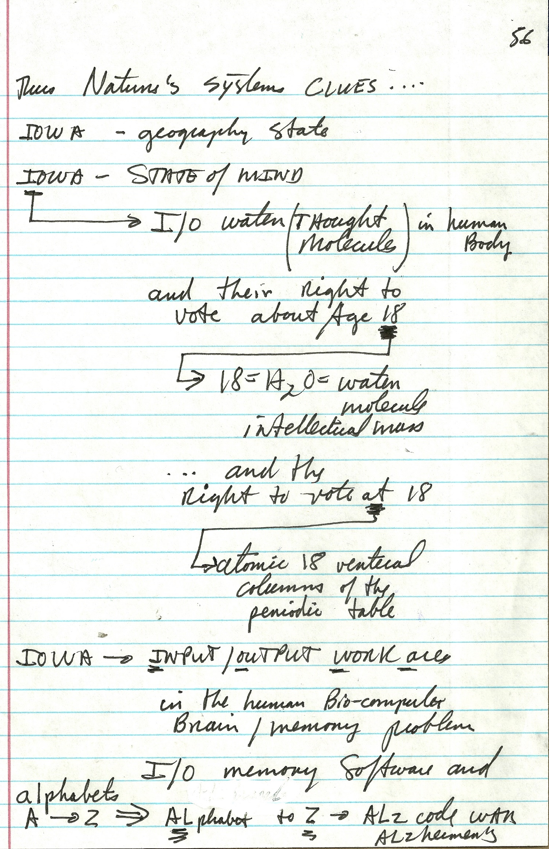 56
Thus Nature's Systems CLUES ....
IOWA - geography state
IOWA - STATE of MIND
I/O water (THought Molecules) in human Body
and their right to
vote about Age 18
18 = H2O = water
molecule
intellectual mass
... and the
Right to vote at 18
atomic 18 vertical
columns of the
periodic table
IOWA → INPUT/OUTPUT WORK area
in the human Bio-computer
Brain/memory problem
I/O memory Software and
alphabets
A → Z ⇒ ALphabet to Z → ALZ code with
ALZheimer's